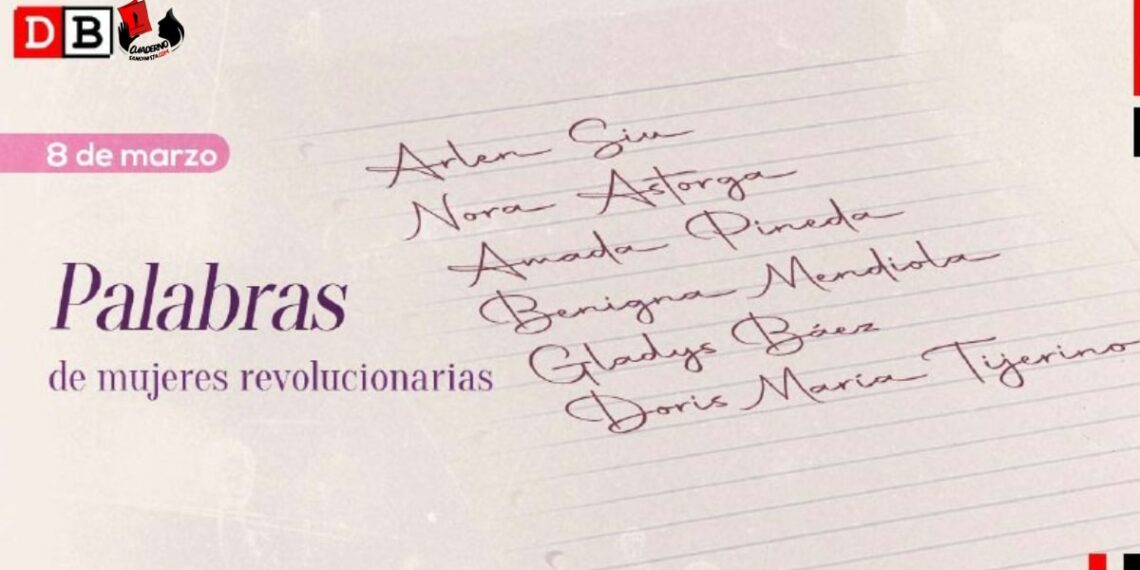 DB
CUADERNO
SANDINISTA.COM
8 de marzo
Palabras
de mujeres revolucionarias
Arlen Siu
Nora Astorga
Amada Pineda
Benigna Mendiola
Gladys Báez
Doris María Tijerino